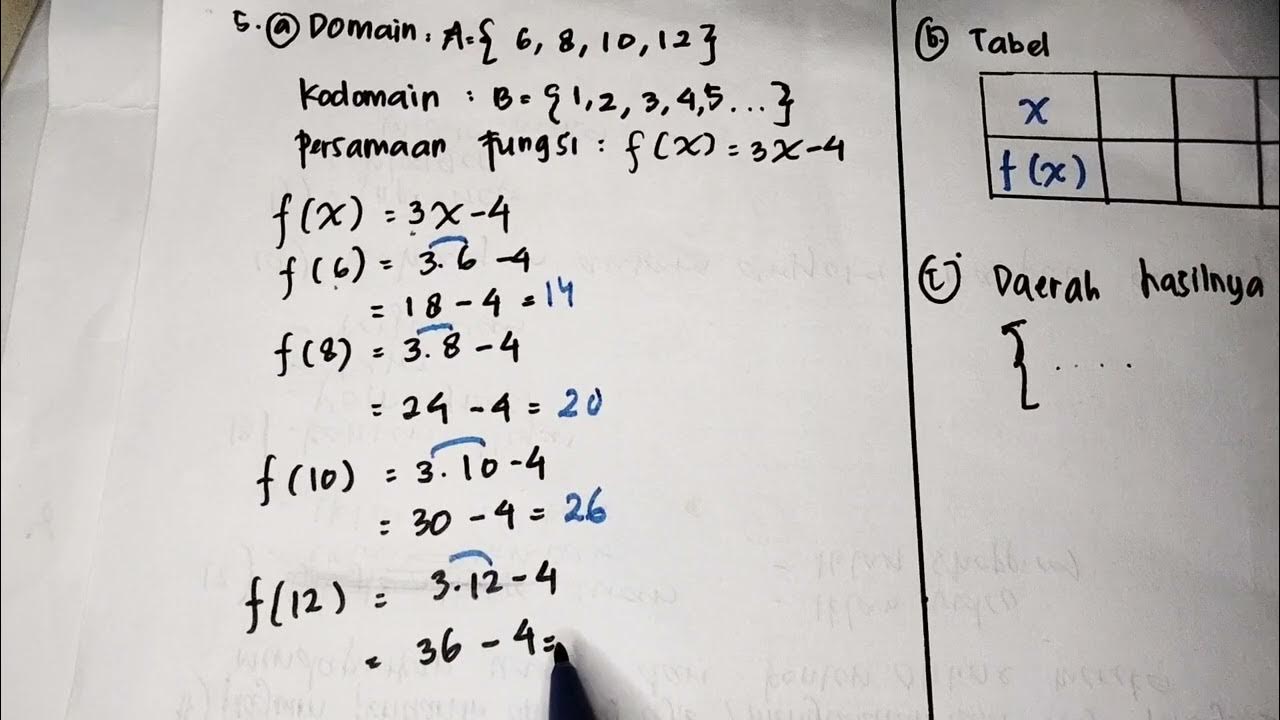 5. (a) Domain : A = { 6, 8, 10, 12 }
Kodomain : B = { 1, 2, 3, 4, 5 ... }
Persamaan fungsi : f(x) = 3x - 4
f(x) = 3x - 4
f(6) = 3.6 - 4
= 18 - 4 = 14
f(8) = 3.8 - 4
= 24 - 4 = 20
f(10) = 3.10 - 4
= 30 - 4 = 26
f(12) = 3.12 - 4
= 36 - 4 =
(b) Tabel
x
f(x)
(c) Daerah hasilnya
{ .....